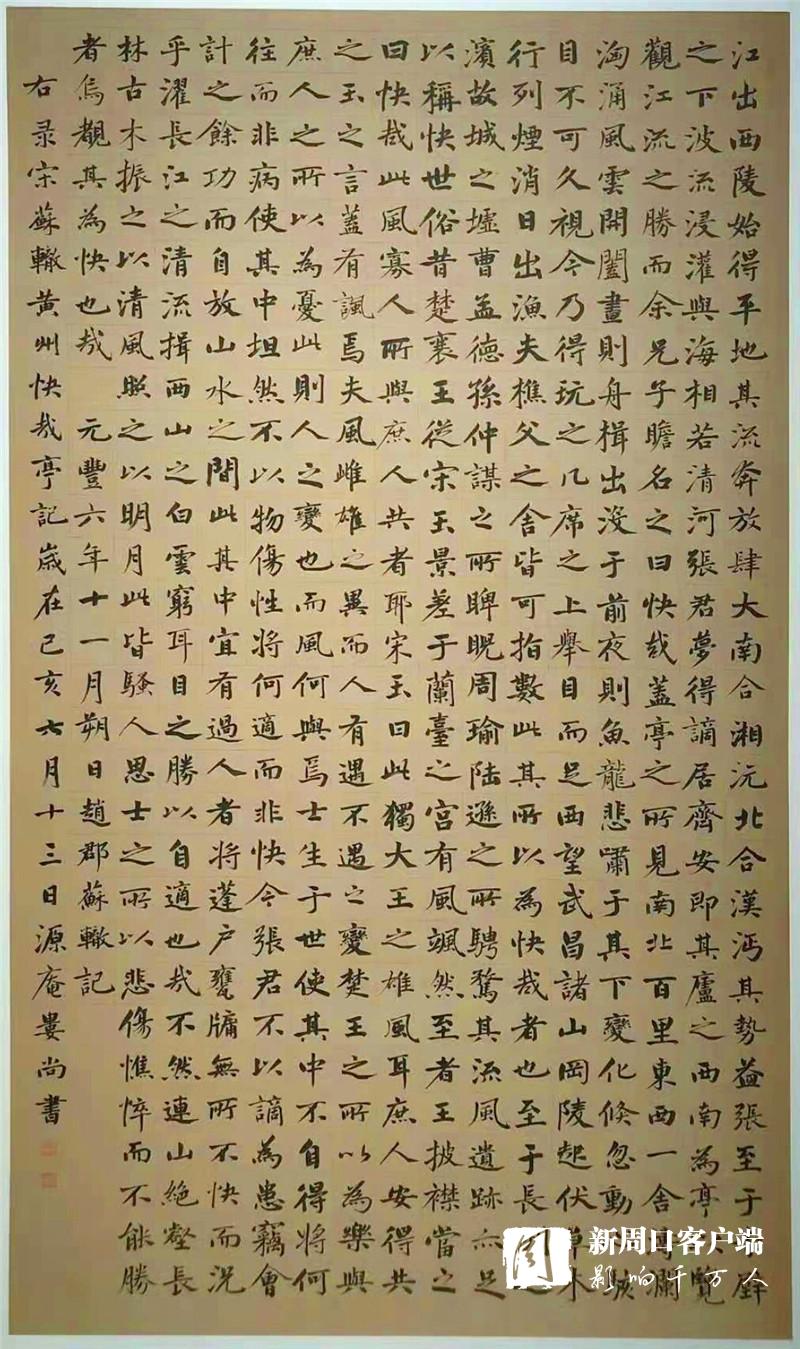 江出西陵始得平地其流奔放肆大南合湘沅北合漢沔其勢益張至于壁
之下波流浸灌與海相若清河張君夢得謫居齊安即其廬之西南為亭覽
觀江流之勝而余兄子瞻名之曰快哉蓋亭之所見南北百里東西一舍瀾
洶涌風雲開闔晝則舟楫出沒于前夜則魚龍悲嘯于其下變化倏忽動駭
目不可久視今乃得玩之几席之上舉目而足西望武昌諸山岡陵起伏草木
行列煙消日出漁夫樵父之舍皆可指數此其所以為快哉者也至于長之
濱故城之墟曹孟德孫仲謀之所睥睨周瑜陸遜之所騁騖其流風遺跡亦足
以稱快世俗昔楚襄王從宋玉景差于蘭臺之宮有風颯然至者王披襟當之
曰快哉此風寡人所與庶人共者耶宋玉曰此獨大王之雄風耳庶人安得共
之玉之言蓋有諷焉夫風雌雄之異而人有遇不遇之變楚王之所以為樂與
庶人之所以為憂此則人之變也而風何與焉士生于世使其中不自得將何
往而非病使其中坦然不以物傷性將何適而非快今張君不以謫為患竊會
計之餘功而自放山水之間此其中宜有過人者將蓬戶甕牖無所不快而況
乎濯長江之清流揖西山之白雲窮耳目之勝以自適也哉不然連山絕壑長
林古木振之以清風照之以明月此皆騷人思士之所以悲傷憔悴而不能勝
者烏覩其為快也哉 元豐六年十一月朔日趙郡蘇轍記
右录宋蘇轍黃州快哉亭記歲在己亥六月十三日源庵婁尚書
周
新周口客户端
影响千万人